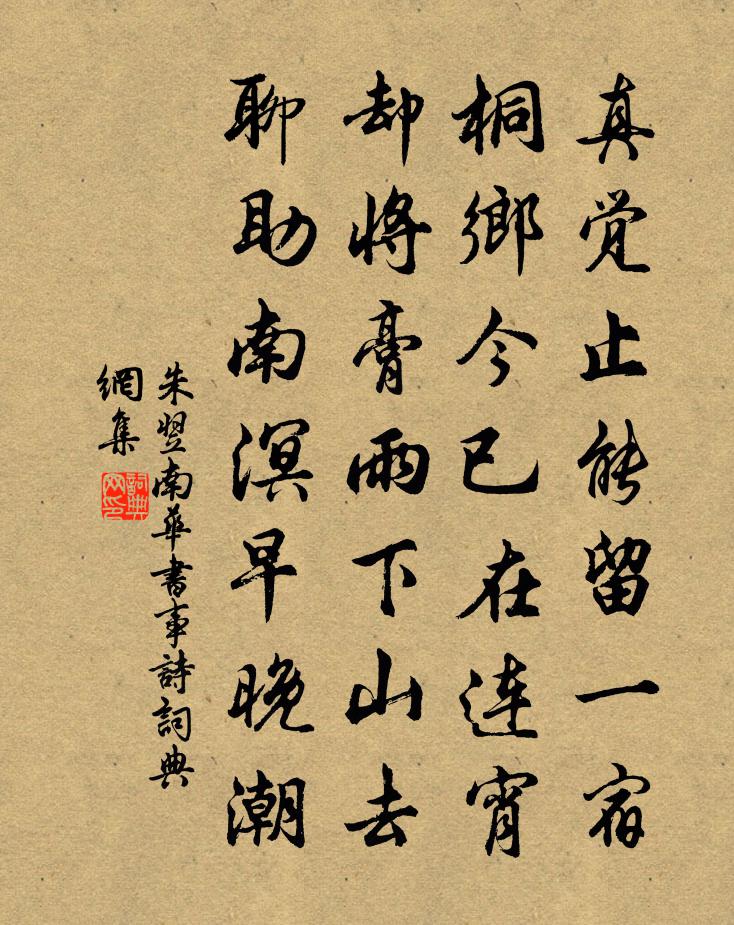 真觉止能留一宿
桐鄉今已在连宵
却將膏雨下山去
聊助南溟早晚潮
朱翌南華書事詩詞典
網集
詞典
网印